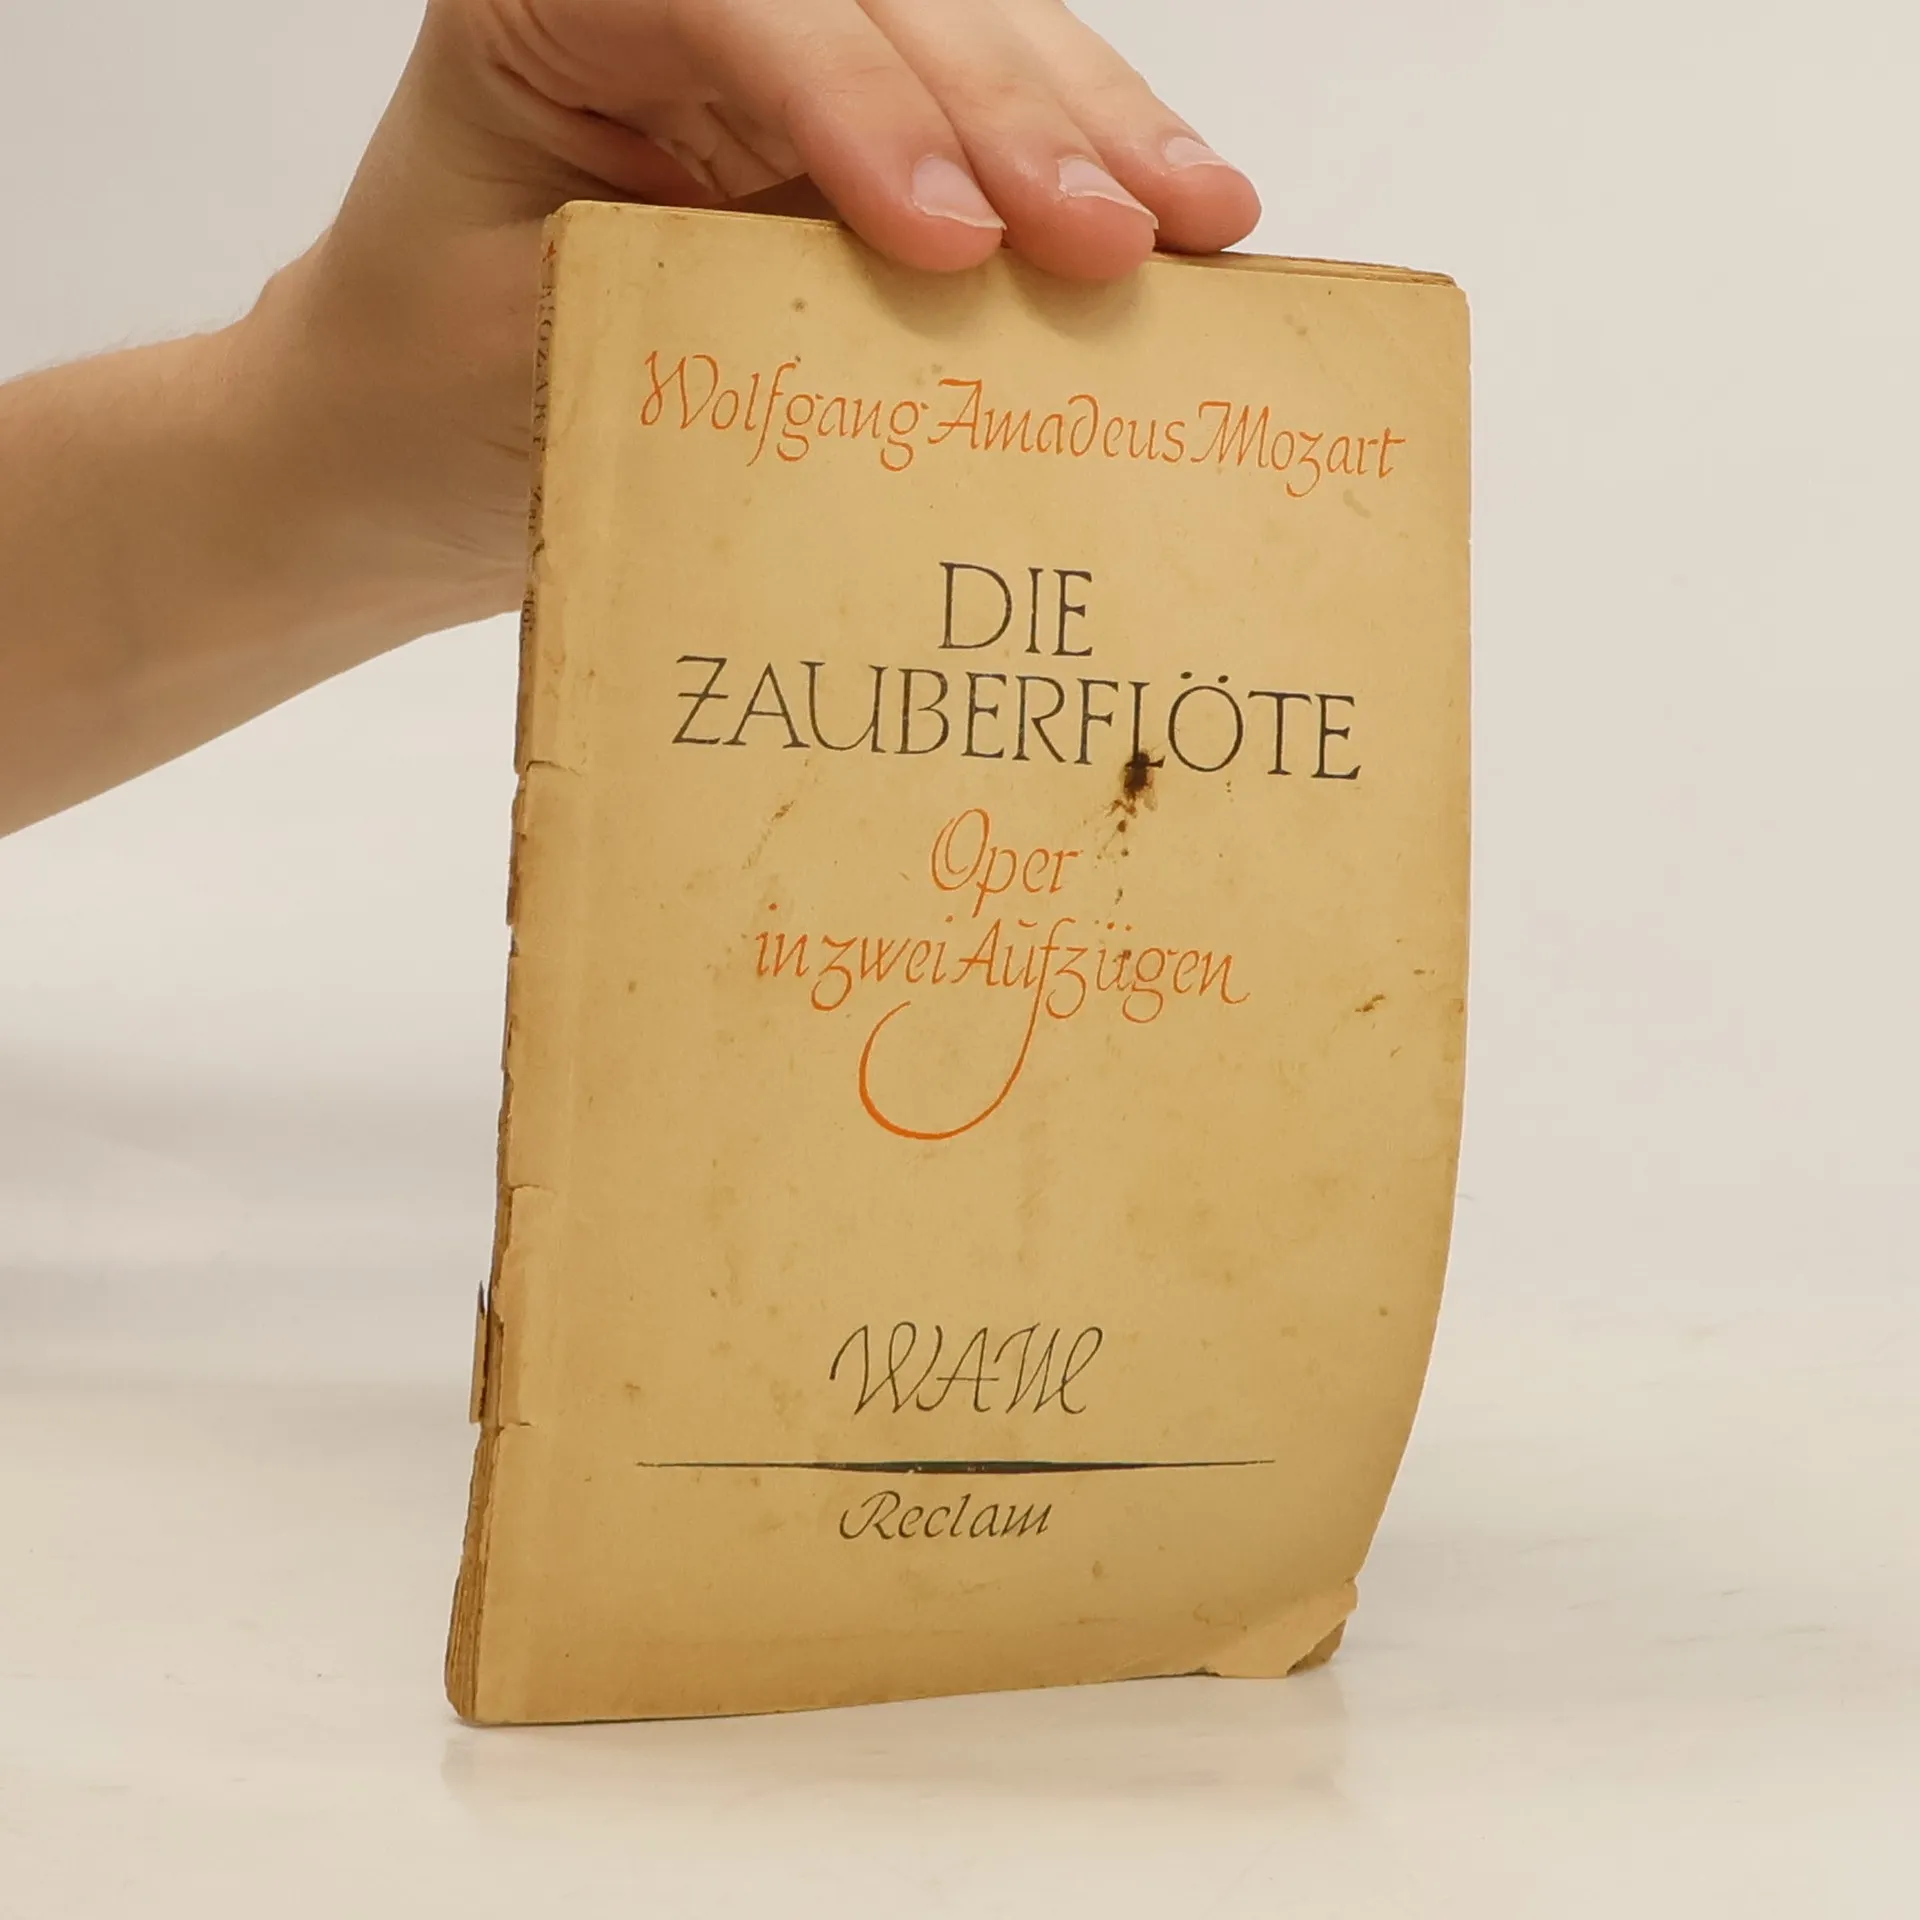 Wolfgang Amadeus Mozart
DIE
ZAUBERFLÖTE
Oper
in zwei Aufzügen
WAM
Reclam
MOZART